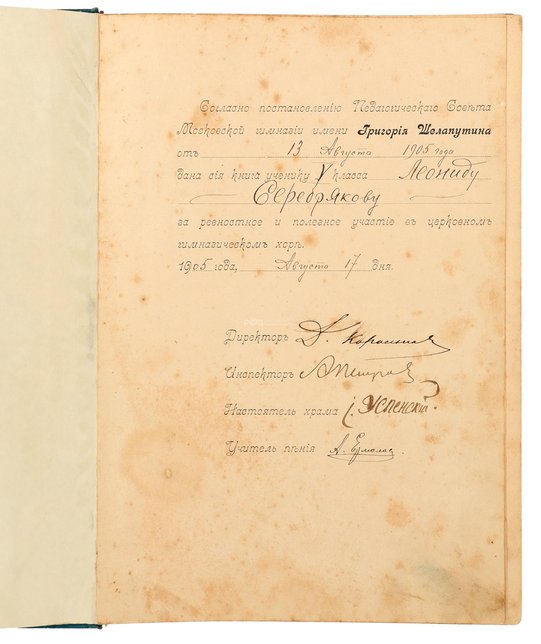 Согласно постановленію Педагогическаго Совѣта
Московской гимназіи имени Григорія Шелапутина
отъ 13 Августа 1905 года
дана сія книга ученику V класса Леониду
Серебрякову
за ревностное и полезное участіе въ церковномъ
гимназическомъ хорѣ.
1905 года, Августа 17 дня.
Директоръ
Инспекторъ АПетровъ
Настоятель храма І. Успенскій.
Учитель пѣнія А. Ермолов